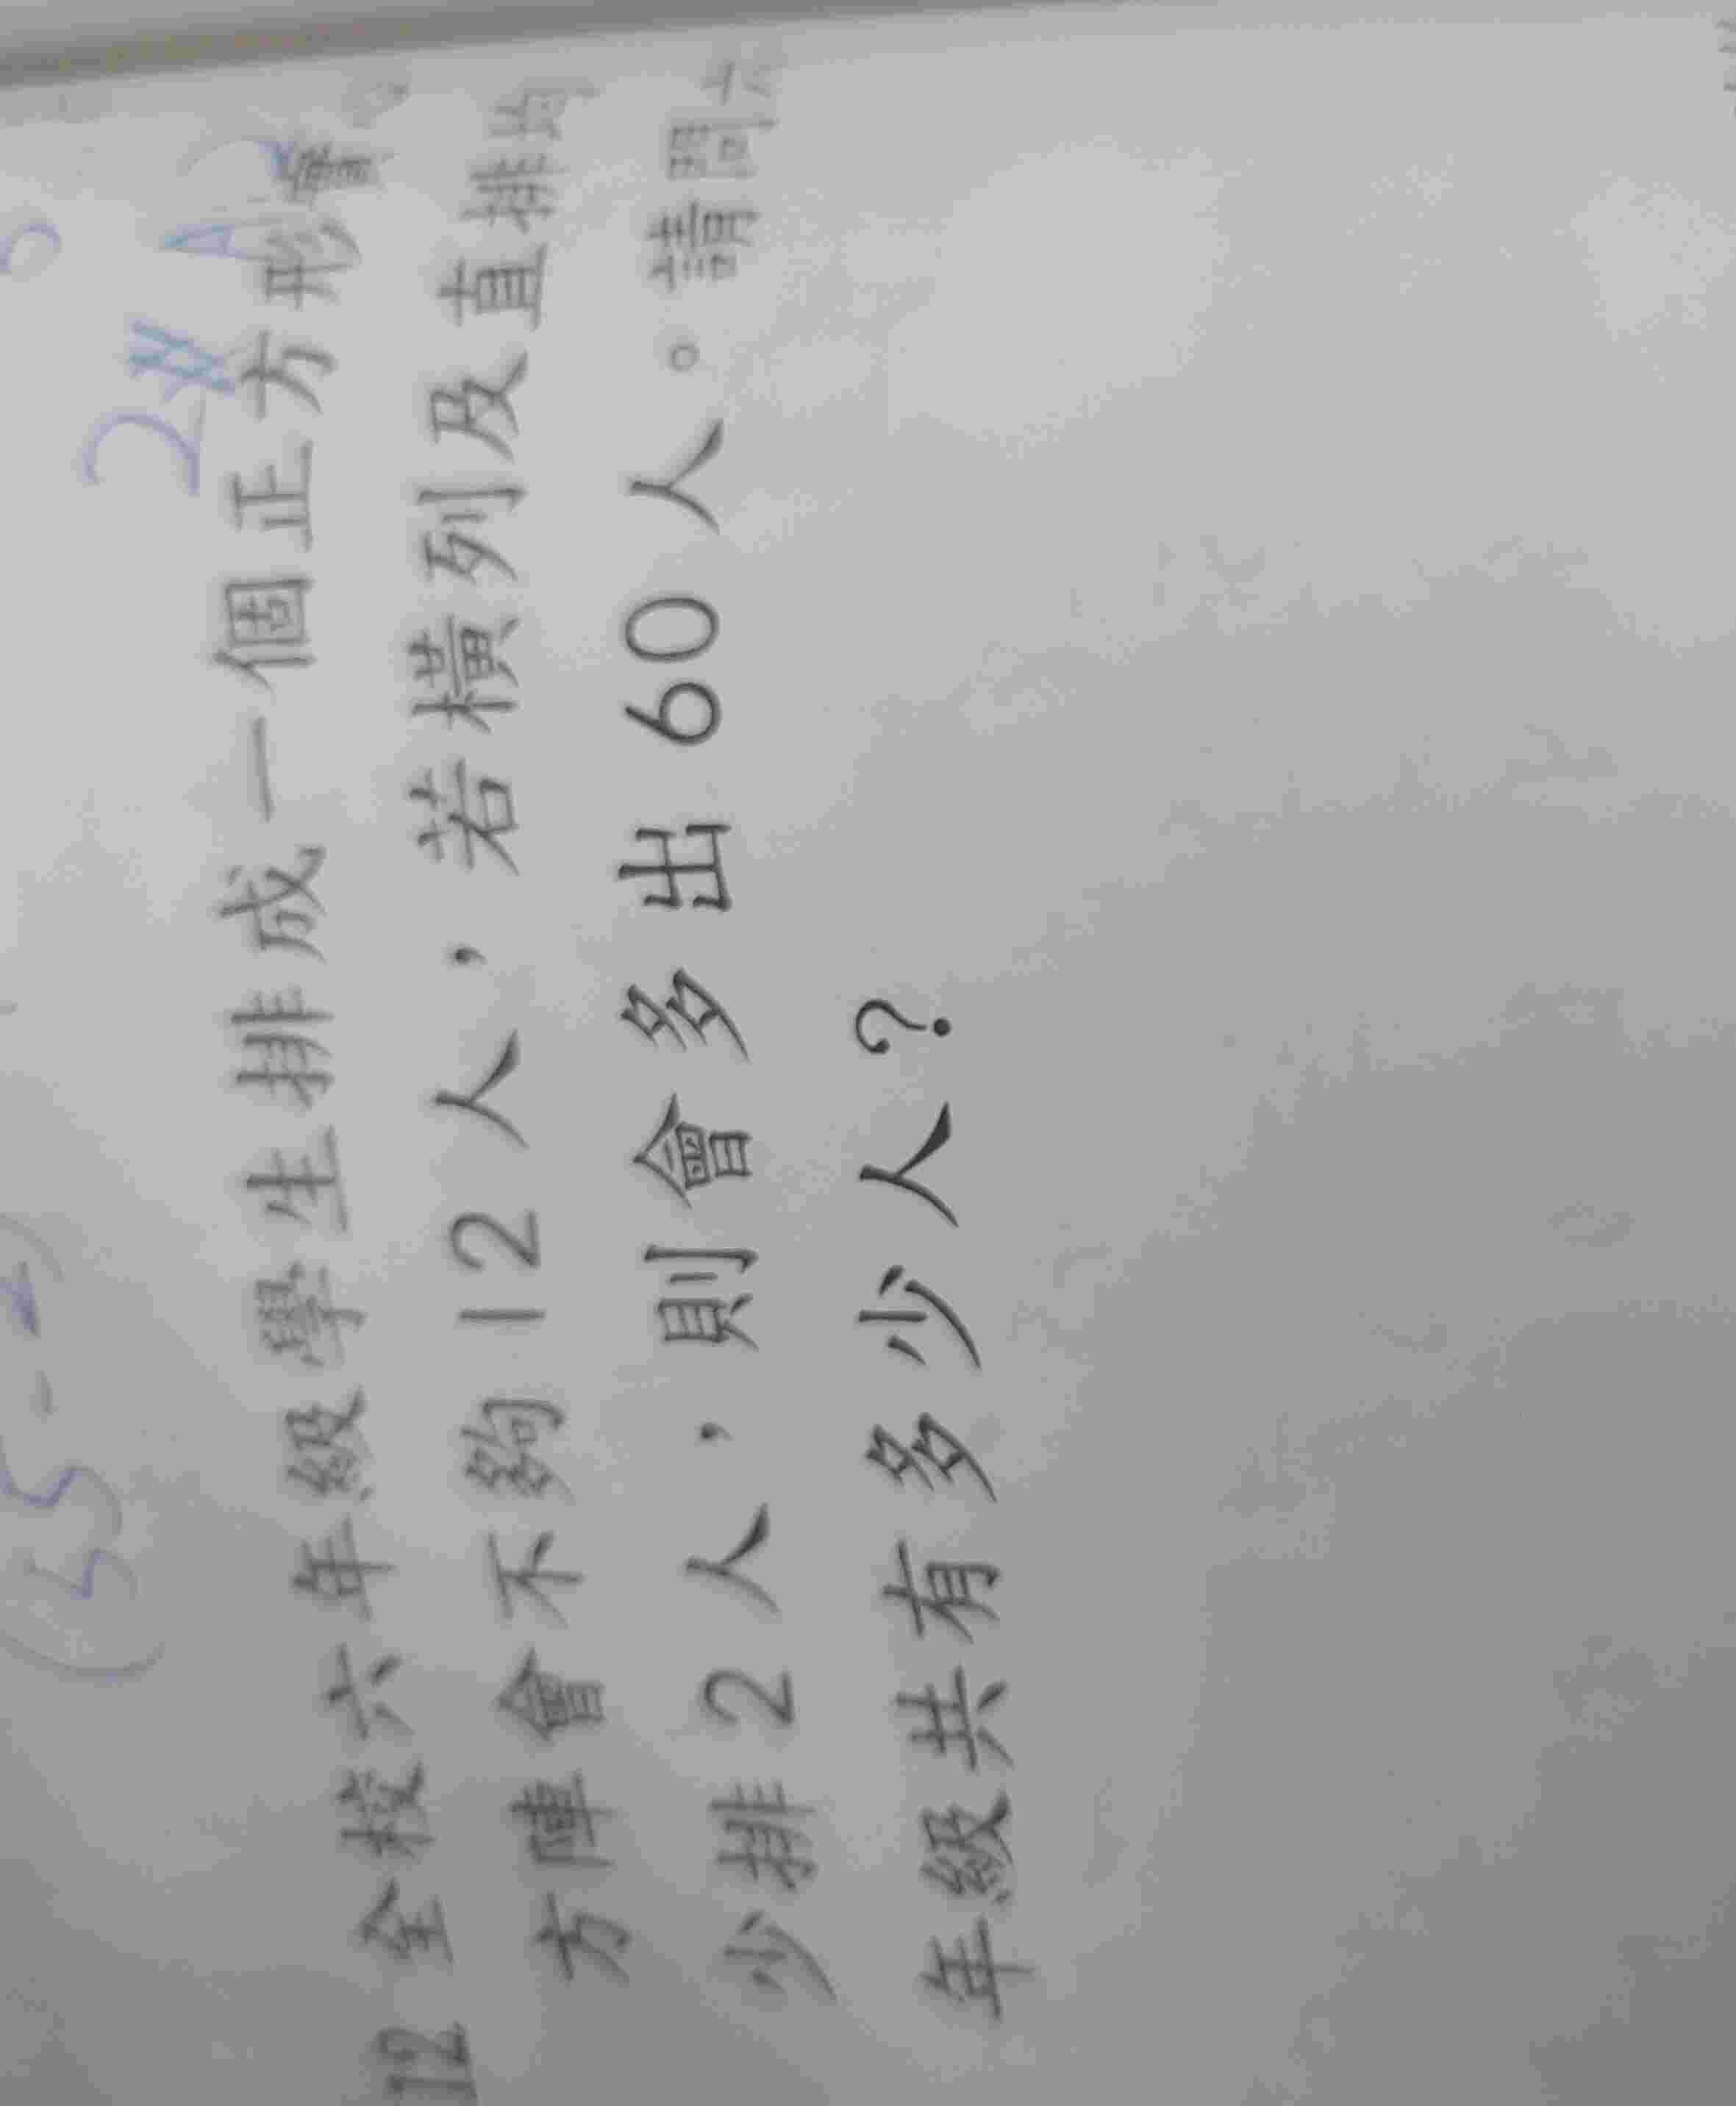 2#
(35-2)
12 全校六年級學生排成一個正方形實
方陣會不夠12人，若橫列及直排均
少排2人，則會多出60人。請問六
年級共有多少人？